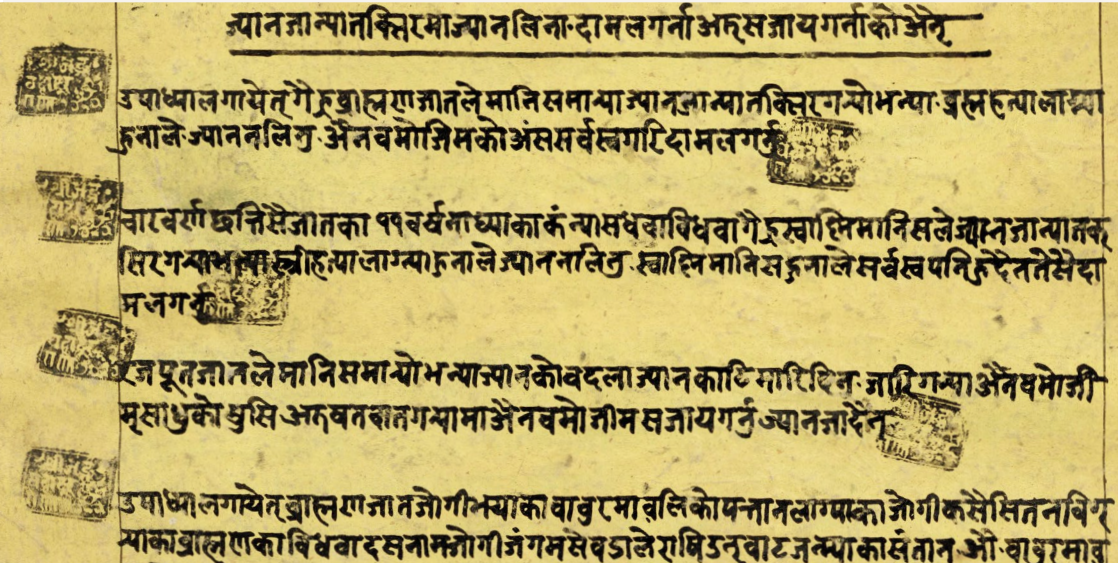 ज्यानजान्यातक्सिरमाज्यानलिनादामलगर्नाअरुसजायगर्नाकोऐन्
उपाध्यालगायेत्गैह्रब्राह्मणजातलेमानिसमार्‍याज्यानजान्यातक्सिरगर्‍योभन्या ब्रह्महत्यालाग्न्या
हुनालेज्याननलिनु ऐनबमोजिमकोअंससर्वस्वगरिदामलगर्नु
चारवर्णछत्तिसैजातका ११ वर्षनाघ्याकाकंन्यासधवाविधवागैह्रस्वास्निमानिसलेज्यानजान्यातक्
सिरगर्‍याभन्यास्त्रीहत्यालाग्न्याहुनालेज्याननलिनु स्वास्निमानिसहुनालेसर्वस्वपनिहुदैनतेसैदा
मलगर्नु
रजपूतजातलेमानिसमार्‍योभन्याज्यानकोबदलाज्यानकाटिमारिदिनु जारिगर्‍याऐनबमोजी
म्साधुकोपुसि अरुषतबातगर्‍यामाऐनबमोजीमसजायगर्नुज्यानजादैन्
उपाध्यालगायेत्ब्राह्मणजातजोगीभयाकाबाबुरमावलिकोपत्तानलाग्याकाजोगीकसैसितनबिग्
र्‍याकाब्राह्मणकाविधवादसनामजोगीजंगमसेवडालेराषिउन्बाटजन्म्याकासंतान्